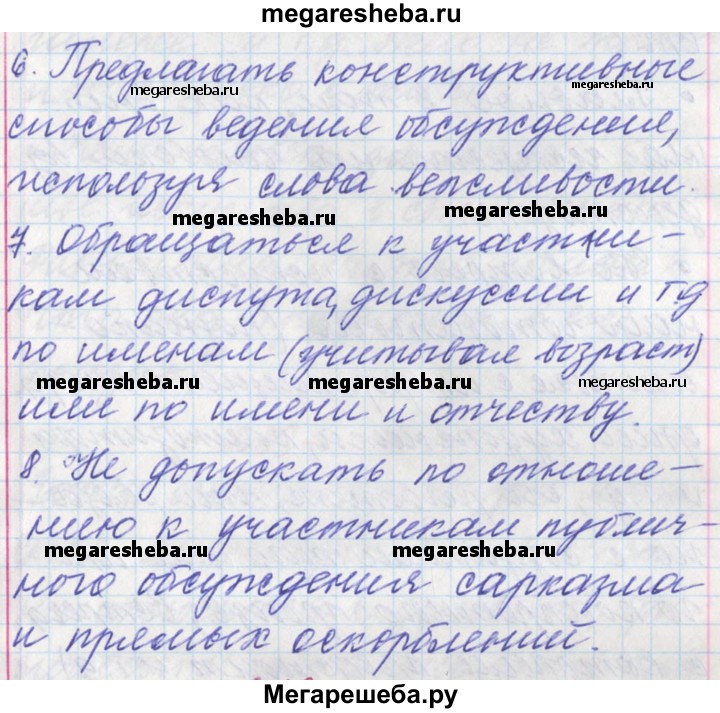 megaresheba.ru
6. Предлагать конструктивные
megaresheba.ru megaresheba.ru
способы ведения обсуждения,
используя слова вежливости.
megaresheba.ru megaresheba.ru
7. Обращаться к участни-
кам диспута, дискуссии и т.д
по именам (учитывая возраст)
megaresheba.ru megaresheba.ru megaresheba.ru
или по имени и отчеству.
8. Не допускать по отноше-
нию к участникам публич-
megaresheba.ru megaresheba.ru
ного обсуждения сарказма
и прямых оскорблений.
Мегарешеба.ру